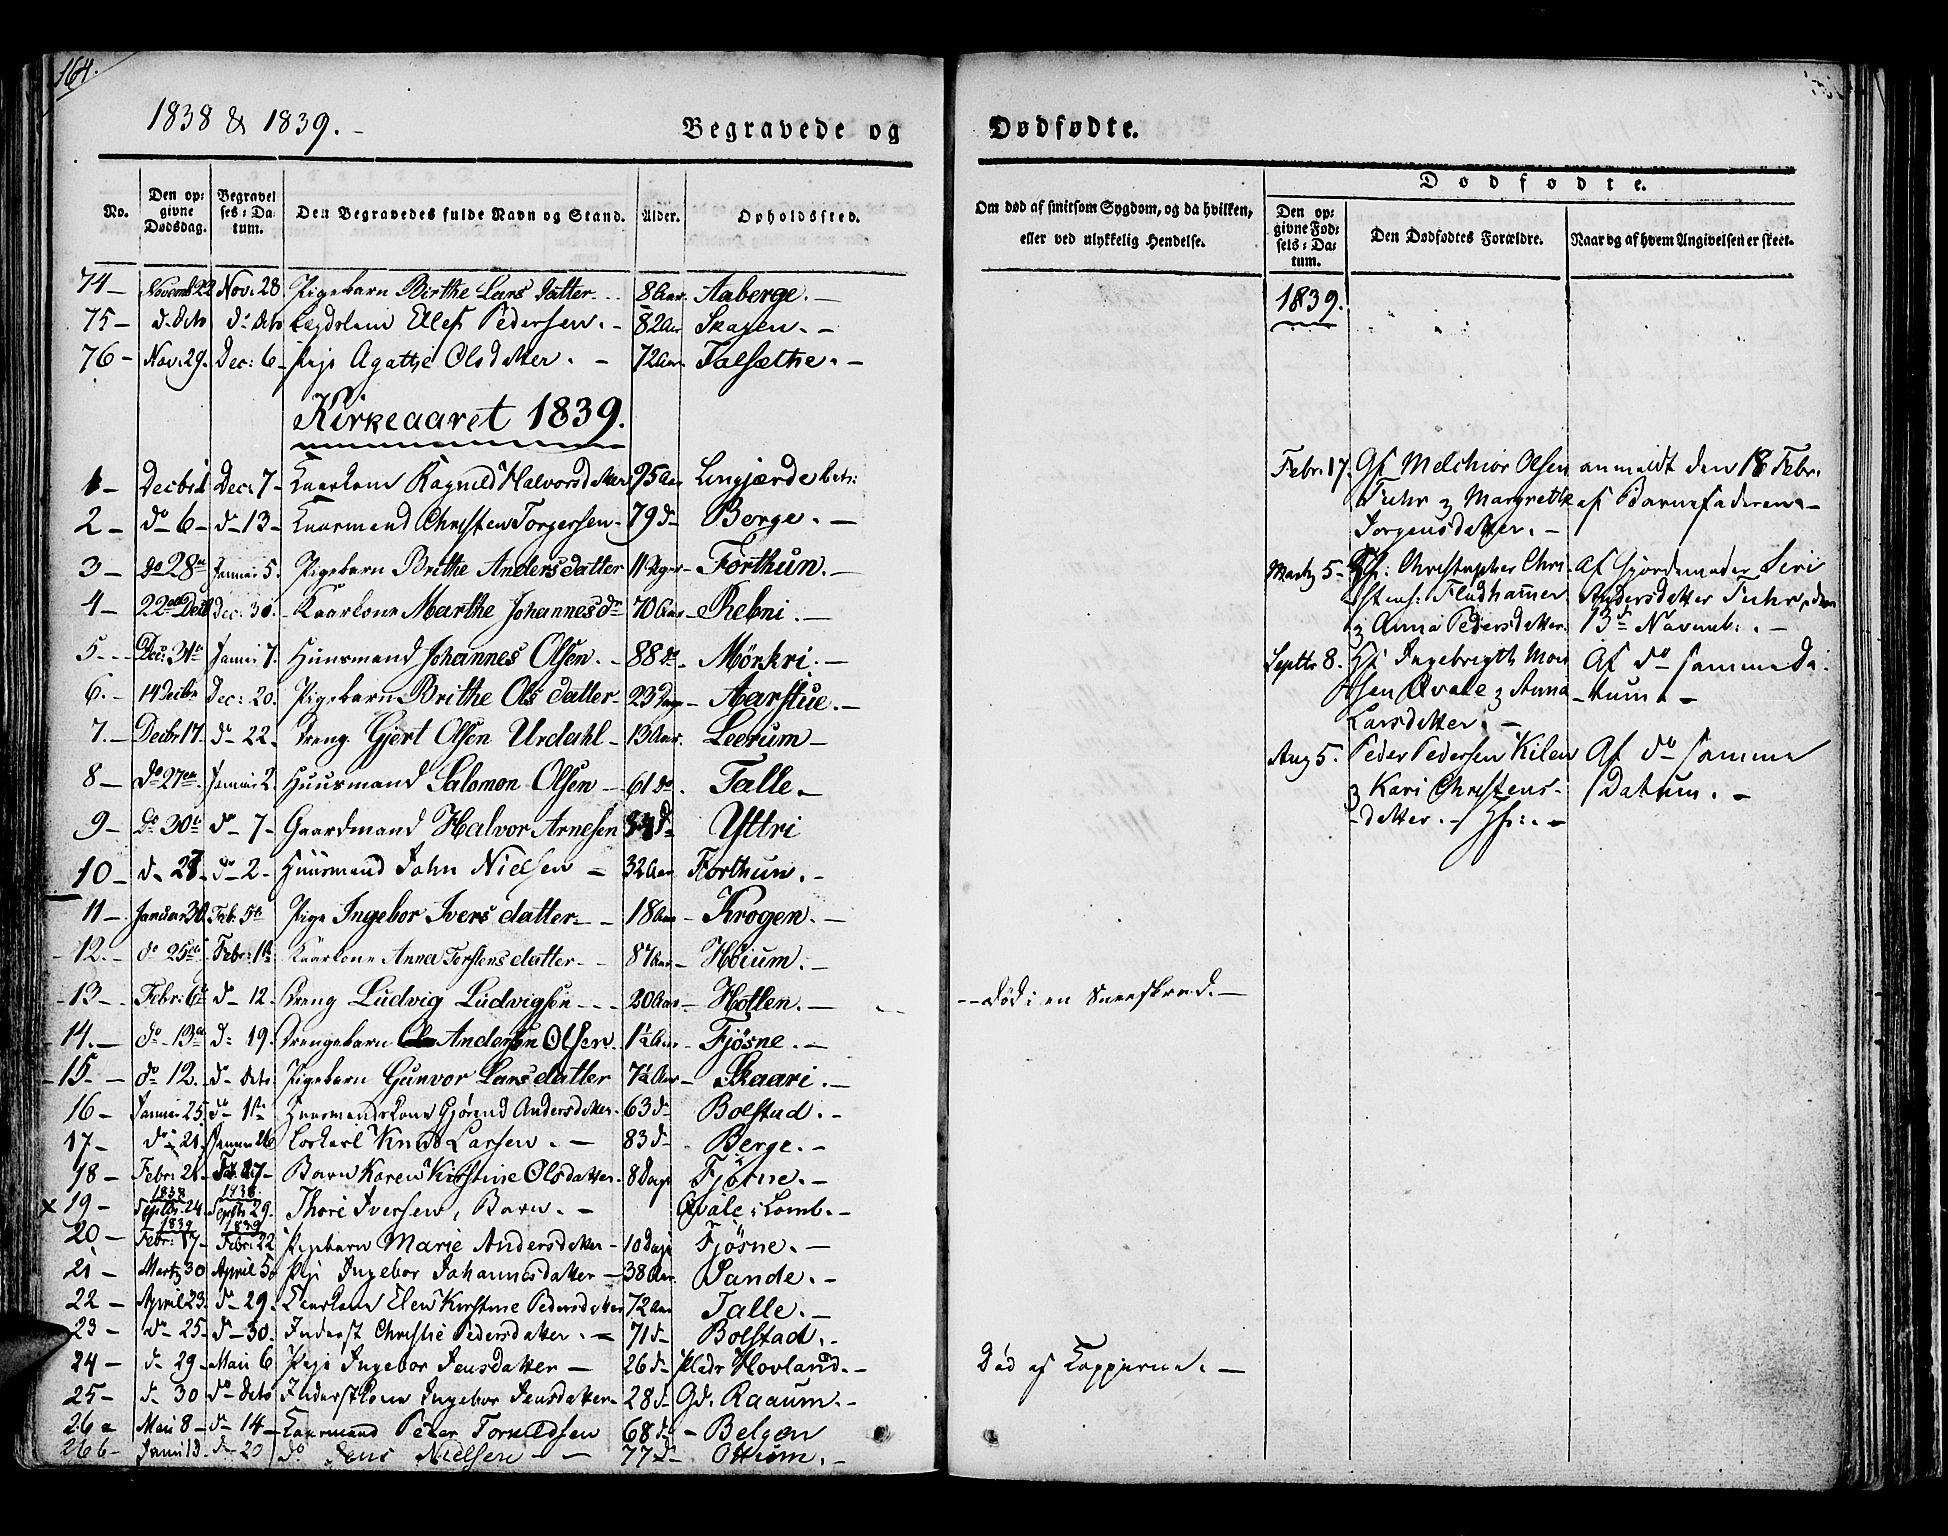 164.
1838 & 1839. -
Begravede og
Dødfødte.
No.
Den op-
givne
Dødsdag.
Begravel
ses-Da-
tum.
Den Begravedes fulde Navn og Stand.
Alder.
Opholdssted.
Om død af smitsom Sygdom, og da hvilken,
eller ved ulykkelig Hendelse.
Dødfødte.
Den op-
givne Fød-
sels-Da-
tum.
Den Dødfødtes Forældre.
Naar og af hvem Angivelsen er skeet.
74 - Novemb 22 Nov: 28 Pigebarn Birthe Lars datter - 8 Aar. Aaberge. -
75 - d- deto d- deto Lægdslem Ellef Pedersen. - 82 Aar Skagen. -
76 - Nov: 29. Dec: 6 - Pige Agathe Olsdatter. - 72 Aar. Talsethe. -
Kirkeaaret 1839.
1 - Decbr 1 Dec: 7 - Kaarkone Ragnild Halvorsdatter 95 Aar Lingjærde
2 - do 6 - d- 13 - Kaarmand Christen Torgersen - 79 d- Berge. -
3 - do 28 Januar 5. Pigebarn Brithe Anders datter 11 Uger - Forthun. -
4 - 22 Dec Dec: 30. - Kaarkone Marthe Johannes d- 70 Aar - Rebni. -
5. - Dec: 31 Januar 7. Huusmand Johannes Olsen. - 88 do - Mørkri. -
6. - 14 Decbr Dec: 20. Pigebarn Brithe Ols datter - 23 Dage - Aarstue. -
7. - Decbr 17 - d- 22. Dreng Gjert Olsen Urdahl - 13 Aar. Leerum -
8 - do 27 Januar 2. Huusmand Salomon Olsen - 61 do. Talle. -
9 - Do 30 do - 7 - Gaardmand Halvor Arnesen d- Yttri
10 - d- 27 - do - 2 - Huusmand John Nielsen - 32 Aar Forthun. -
11 - Januar 30. Feb: 5 Pige Ingebor Ivers datter - 18 Aar - Krogen. -
12. - do 25 Febr: 1 Kaarkone Anna Torstens datter - 87 Aar - Høium. -
13 - Febr: 6 d- 12 - Dreng Ludvig Ludvigsen - 20 Aar - Hotlen. -
- - død i en Sneeskred. -
14. - do 13 d- 19. Drengebarn Andersen Olsen. 1½ Aar - Fjøsne. -
15. - do 12. - d- deto Pigebarn Gunvor Lars datter 7½ Aar - Skaari. -
16 - Januar 25. do - 1 Huusmandskone Gjørend Andersdatter - 63 d- Bolstad. -
17 - do 21. Januar 26 Knud Larsen. - 83 d- Berge. -
18 - Febr: 21 Feb 27 - Barn Karen Kirstine Olsdatter - 8 Dage Fjørne. -
x 19 - 1838 Septbr. 24. 1838 Septbr 29. Thore Iversen, Barn. - Qvale i Lomb. -
20 - 1839 Febr: 17 - 1839 Febr: 22 Pigebarn Marie Andersdatter - 10 Dage Fjøsne. -
21 - Martz 30 April 5 Pige Ingebor Johannesdatter - 38 Aar. Sande. -
22 - April 23. d- 29. Kaarkone Elen Kirstine Pedersdatter 72 Aar Talle. -
23 - do - 25. d- 30. Inderst Christie Pedersdatter. - 71 d- Bolstad. -
24 - d- 29 - Mai 6 Pige Ingebor Jensdatter - 26 d- Pladr Hovland. -
Død af Kopperne. -
25 - d- 30 do - deto Inderstkone Ingebor Jensdatter - 28 d- Gd. Raaum. -
26 a Mai 8 - d- 14 - Kaarmand Peter Torkildsen 68 d- - Belgen
26 b - Juni 13. d- 20 do Jens Nielsen - - 77 d- Ottum. -
1839.
Febr: 17. Gf Melchior Olsen
Fuhr & Margrethe
Jørgensdatter. -
anmeldt den 18 Febr:
af Barnefaderen. -
Martz 5 - Gf: Christopher Chri-
stens: Fladhamer
& Anna Pedersdatter.
Af Gjordemoder Siri
Andersdatter Fuhr, den
13d Novemb: . -
Septbr 8. Hf Ingebrigth Mon
sen Qvale & Anna
Larsdatter. -
Af do samme Da-
- tum. -
Aug 5. Peder Pedersen Kilen
& Kari Christens-
- datter. - Hf: . -
Af do samme
Datum. -